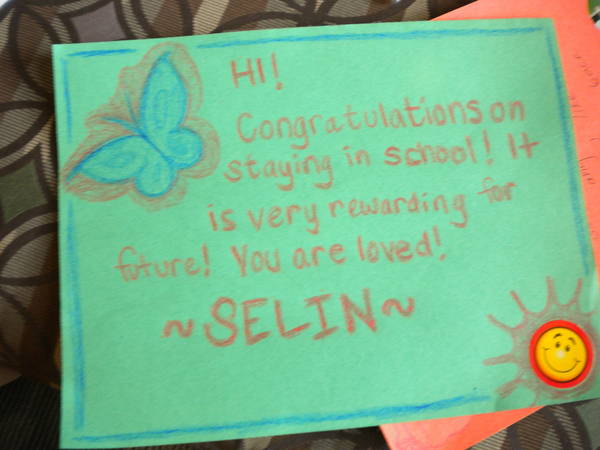 HI!
Congratulations on
staying in school! It
is very rewarding for
future! You are loved!
~SELIN~